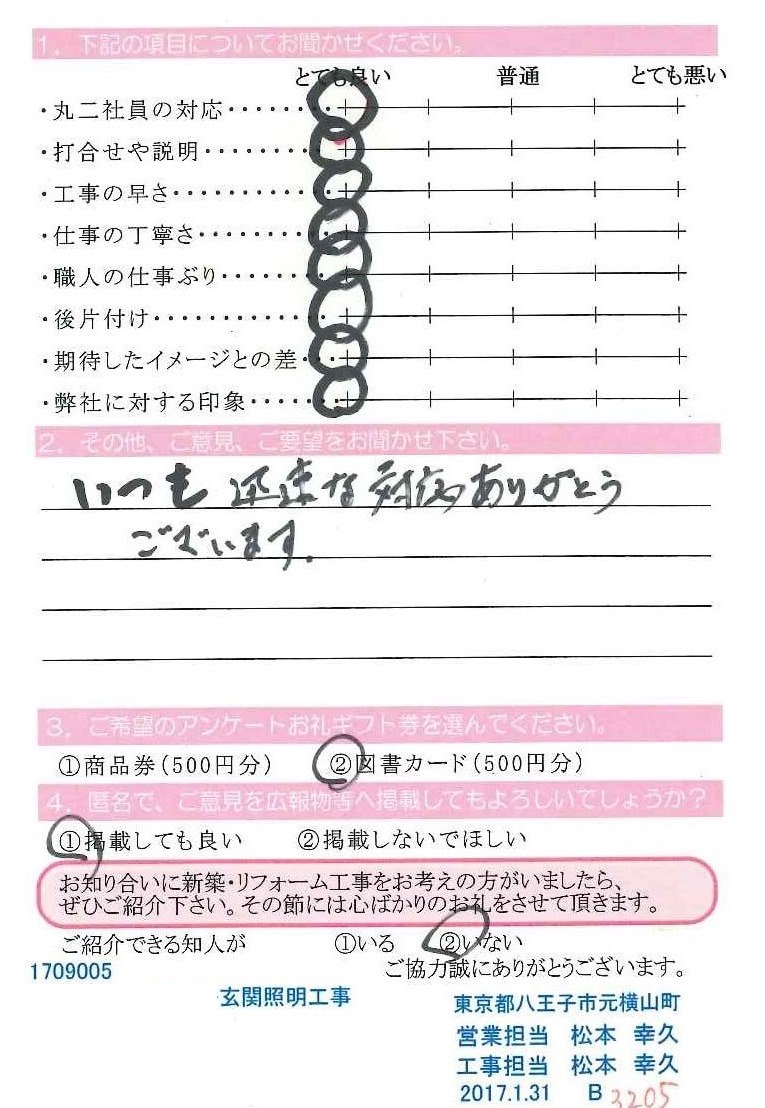 1. 下記の項目についてお聞かせください。
とても良い 普通 とても悪い
・丸二社員の対応・・・・・・・・
・打合せや説明・・・・・・・・・
・工事の早さ・・・・・・・・・・・
・仕事の丁寧さ・・・・・・・・・
・職人の仕事ぶり・・・・・・・・
・後片付け・・・・・・・・・・・・
・期待したイメージとの差・・
・弊社に対する印象・・・・・・
2. その他、ご意見、ご要望をお聞かせ下さい。
いつも 迅速な対応ありがとう
ございます。
3. ご希望のアンケートお礼ギフト券を選んでください。
①商品券(500円分) ②図書カード(500円分)
4. 匿名で、ご意見を広報物等へ掲載してもよろしいでしょうか?
①掲載しても良い ②掲載しないでほしい
お知り合いに新築・リフォーム工事をお考えの方がいましたら、
ぜひご紹介下さい。その節には心ばかりのお礼をさせて頂きます。
ご紹介できる知人が ①いる ②いない
1709005 ご協力誠にありがとうございます。
玄関照明工事 東京都八王子市元横山町
営業担当 松本 幸久
工事担当 松本 幸久
2017.1.31 B 3205